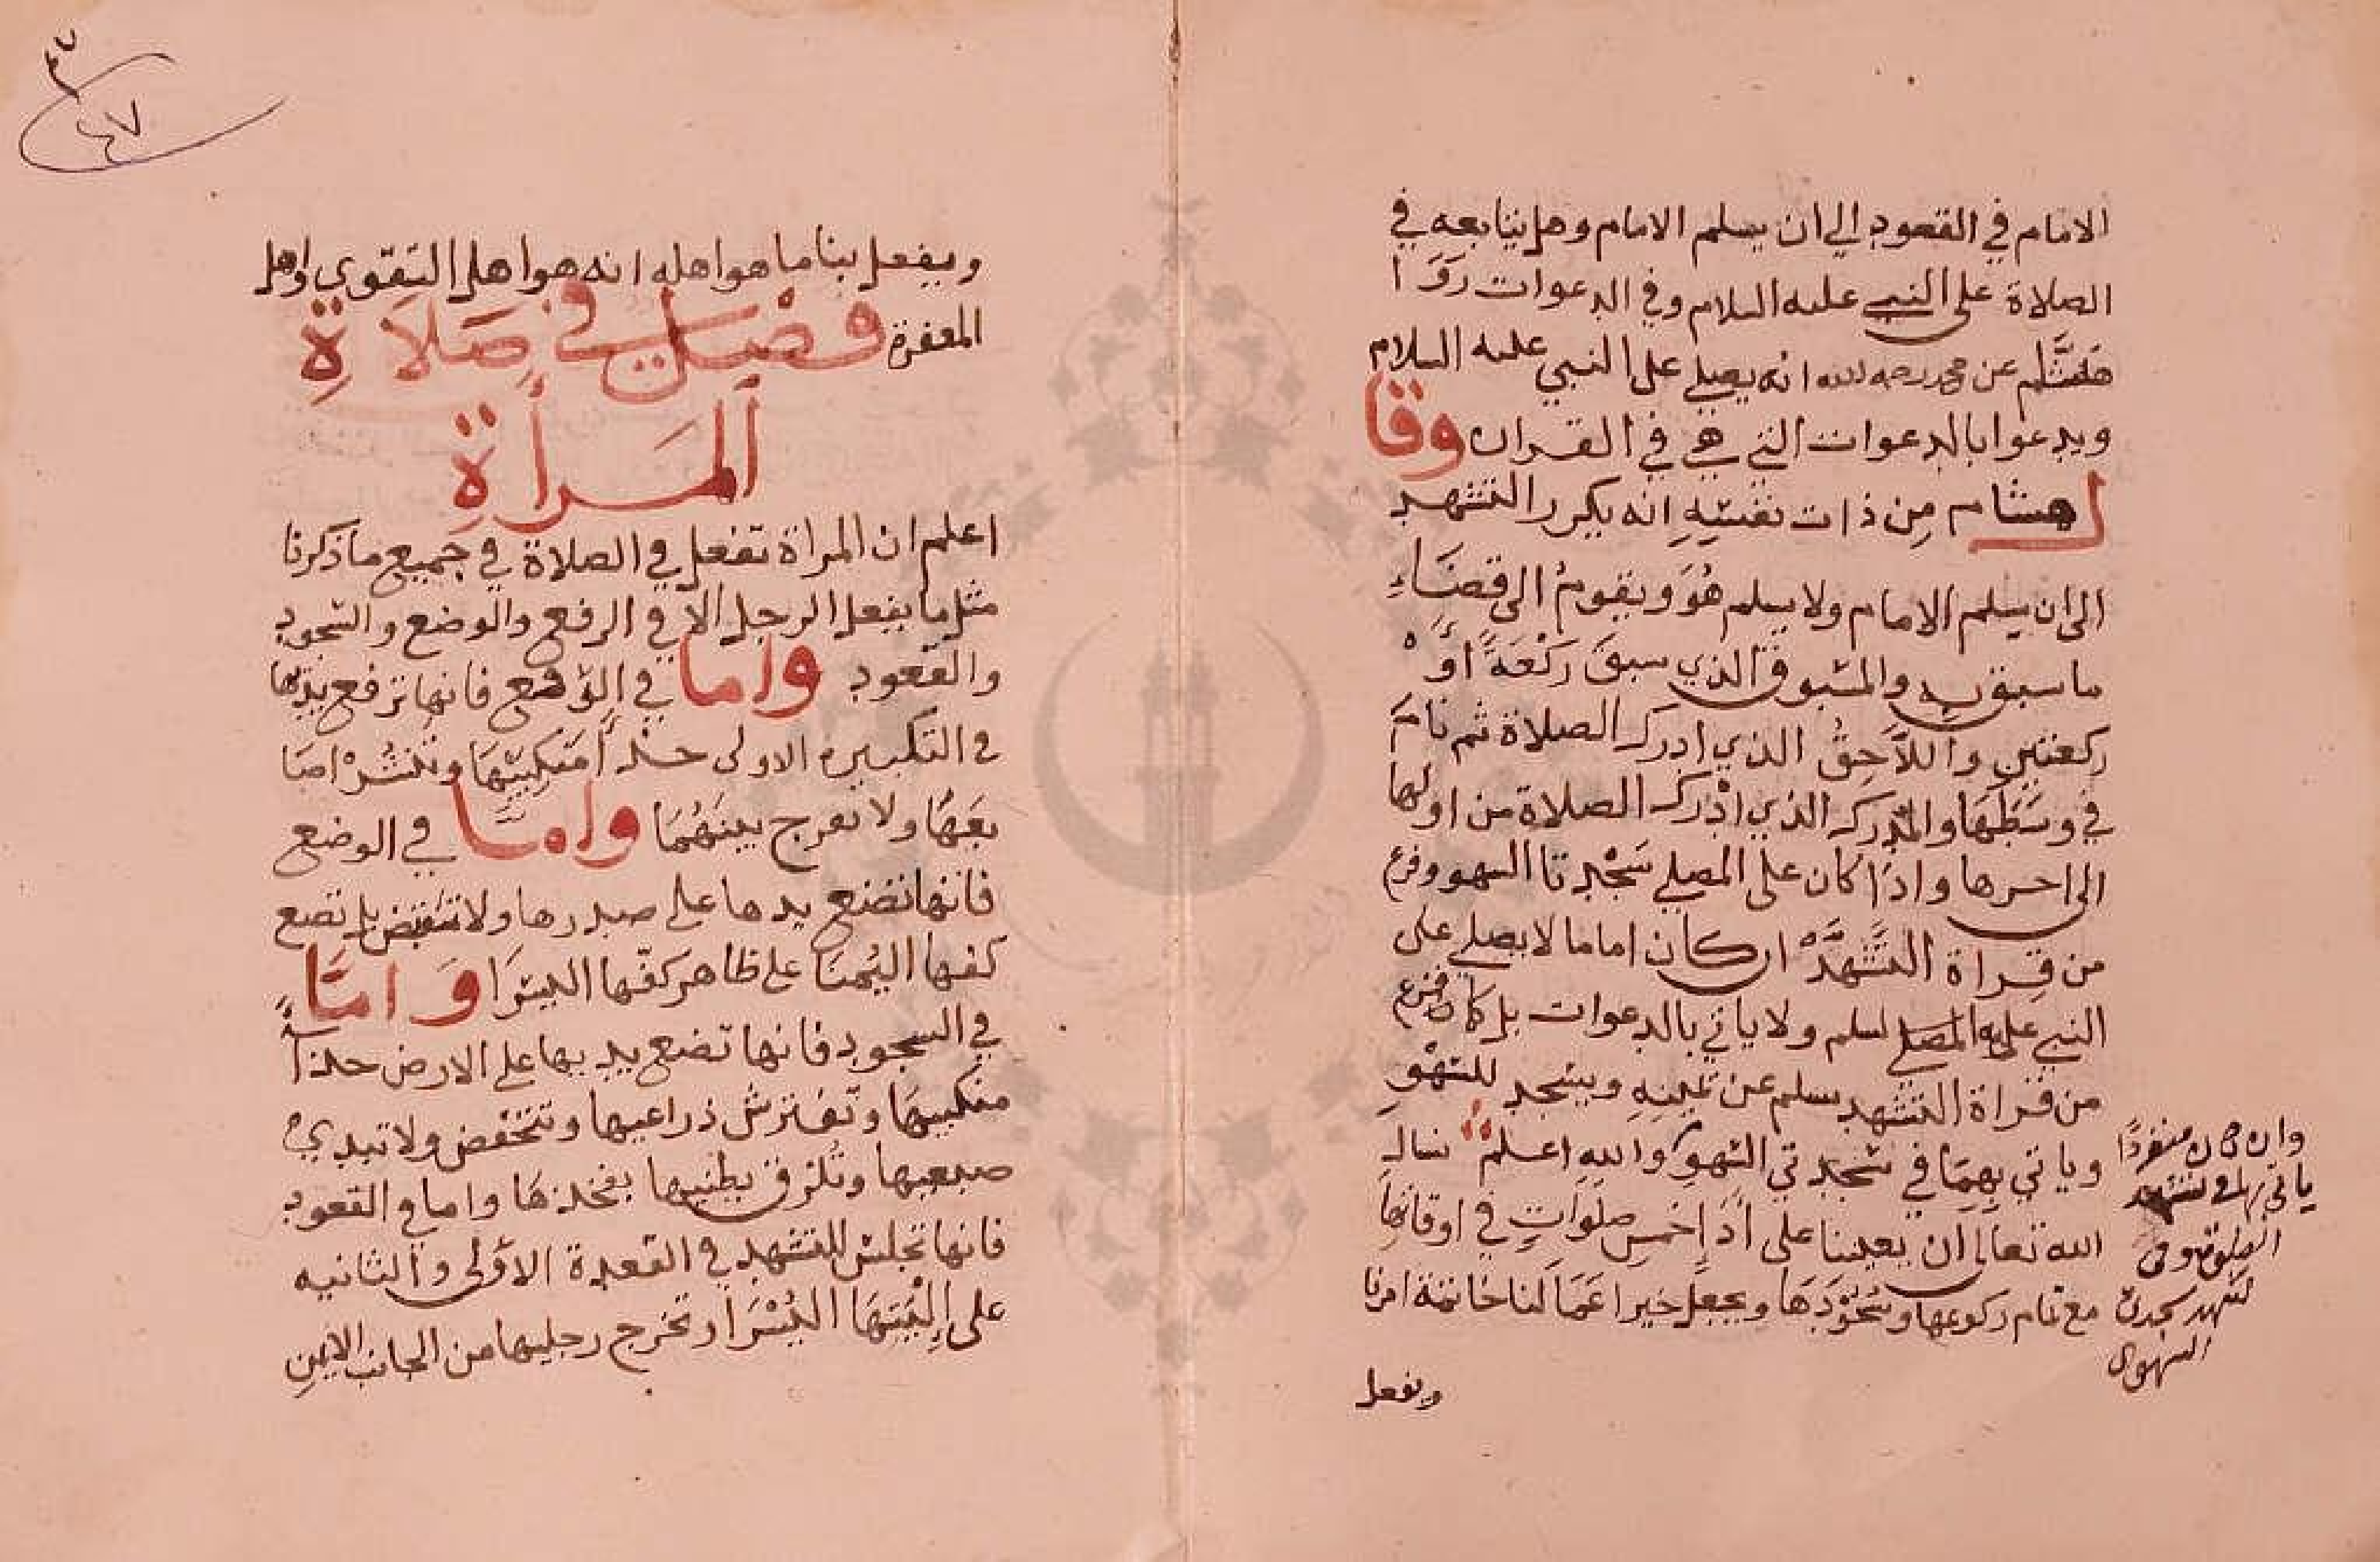 الامام في القعود الي ان يسلم الامام وهل يتابعه في
الصلاة على النبي عليه السلام وفي الدعوات روَا
هشام عن محمد رحمه الله انه يصلي على النبي عليه السلام
ويدعوا بالدعوات التي هي في القران وقا
ل هشام مِن ذات نفسِهِ انه يكرر التشهد
الى ان يسلم الامام ولا يسلم هُوَ ويقومُ الى قضَاءِ
ما سبق به والمسبوق الذي سبقَ ركعَةً اوْ
ركعتين واللاَّحِقُ الذي ادرك الصلاة ثم نامَ
في وسَطِهَا والمدرك الذي ادْرك الصلاة من اولها
الى اخرها واذا كان على المصلي سَجْدتا السهو وفرغ
من قِراة التَّشهدْ ان كان اماما لا يصلي على
النبي عليه السلم ولا ياتي بالدعوات بل كان فرغ
من قراة التشهد يسلم عن يمينهِ ويسجد للسَّهْوِ
وياتي بِهِمَا في سَجدتي السَّهوِ والله اعلم نسال
الله تعالى ان يعيننا على اَدَاءِ خمسِ صلواتٍ في اوقاتها
مع تمام ركوعها وسُجُوْدِهَا ويجعل خير اعمَالنا خاتمة امرنا
ويفعل
وان كان منفردًا
ياتي بهما في تشهد
الصلوة وفي
تشهد سجدتي
السهو
٤٧
ويفعل بنا ما هو اهله انه هو اهل التقوى واهل
المغفرة فصل في صَلاَةِ
المَرأَةِ
اعلم ان المراة تفعل في الصلاة في جميع ما ذكرنا
مثل ما يفعل الرجل الاَّ في الرفع والوضع والسّجود
والقعود واما في الرفع فانها ترفع يدَيها
في التكبيره الاولى حذاَ مَنكِبَيْهَا وتنشُرْ اصَا
بعَهَا ولا تفرج بينَهُمَا وامَّا في الوضع
فانها تضع يدها على صدرها ولا تقبض بل تضع
كفها اليُمنَا على ظاهر كفّها اليسْرَا وَامَّا
في السجود فانها تضع يديها على الارض حذاَ
منكبيهَا وتفترش ذراعيها وتنخفض ولا تبدي
ضبعيها وتُلزق بطنيها بفخذهَا واما في القعود
فانها تجلس للتشهد في القعدة الاوَّلى والثانيه
على اِلْيَتِهَا اليُسْرَا وتخرج رجليها من الجانب الايمن